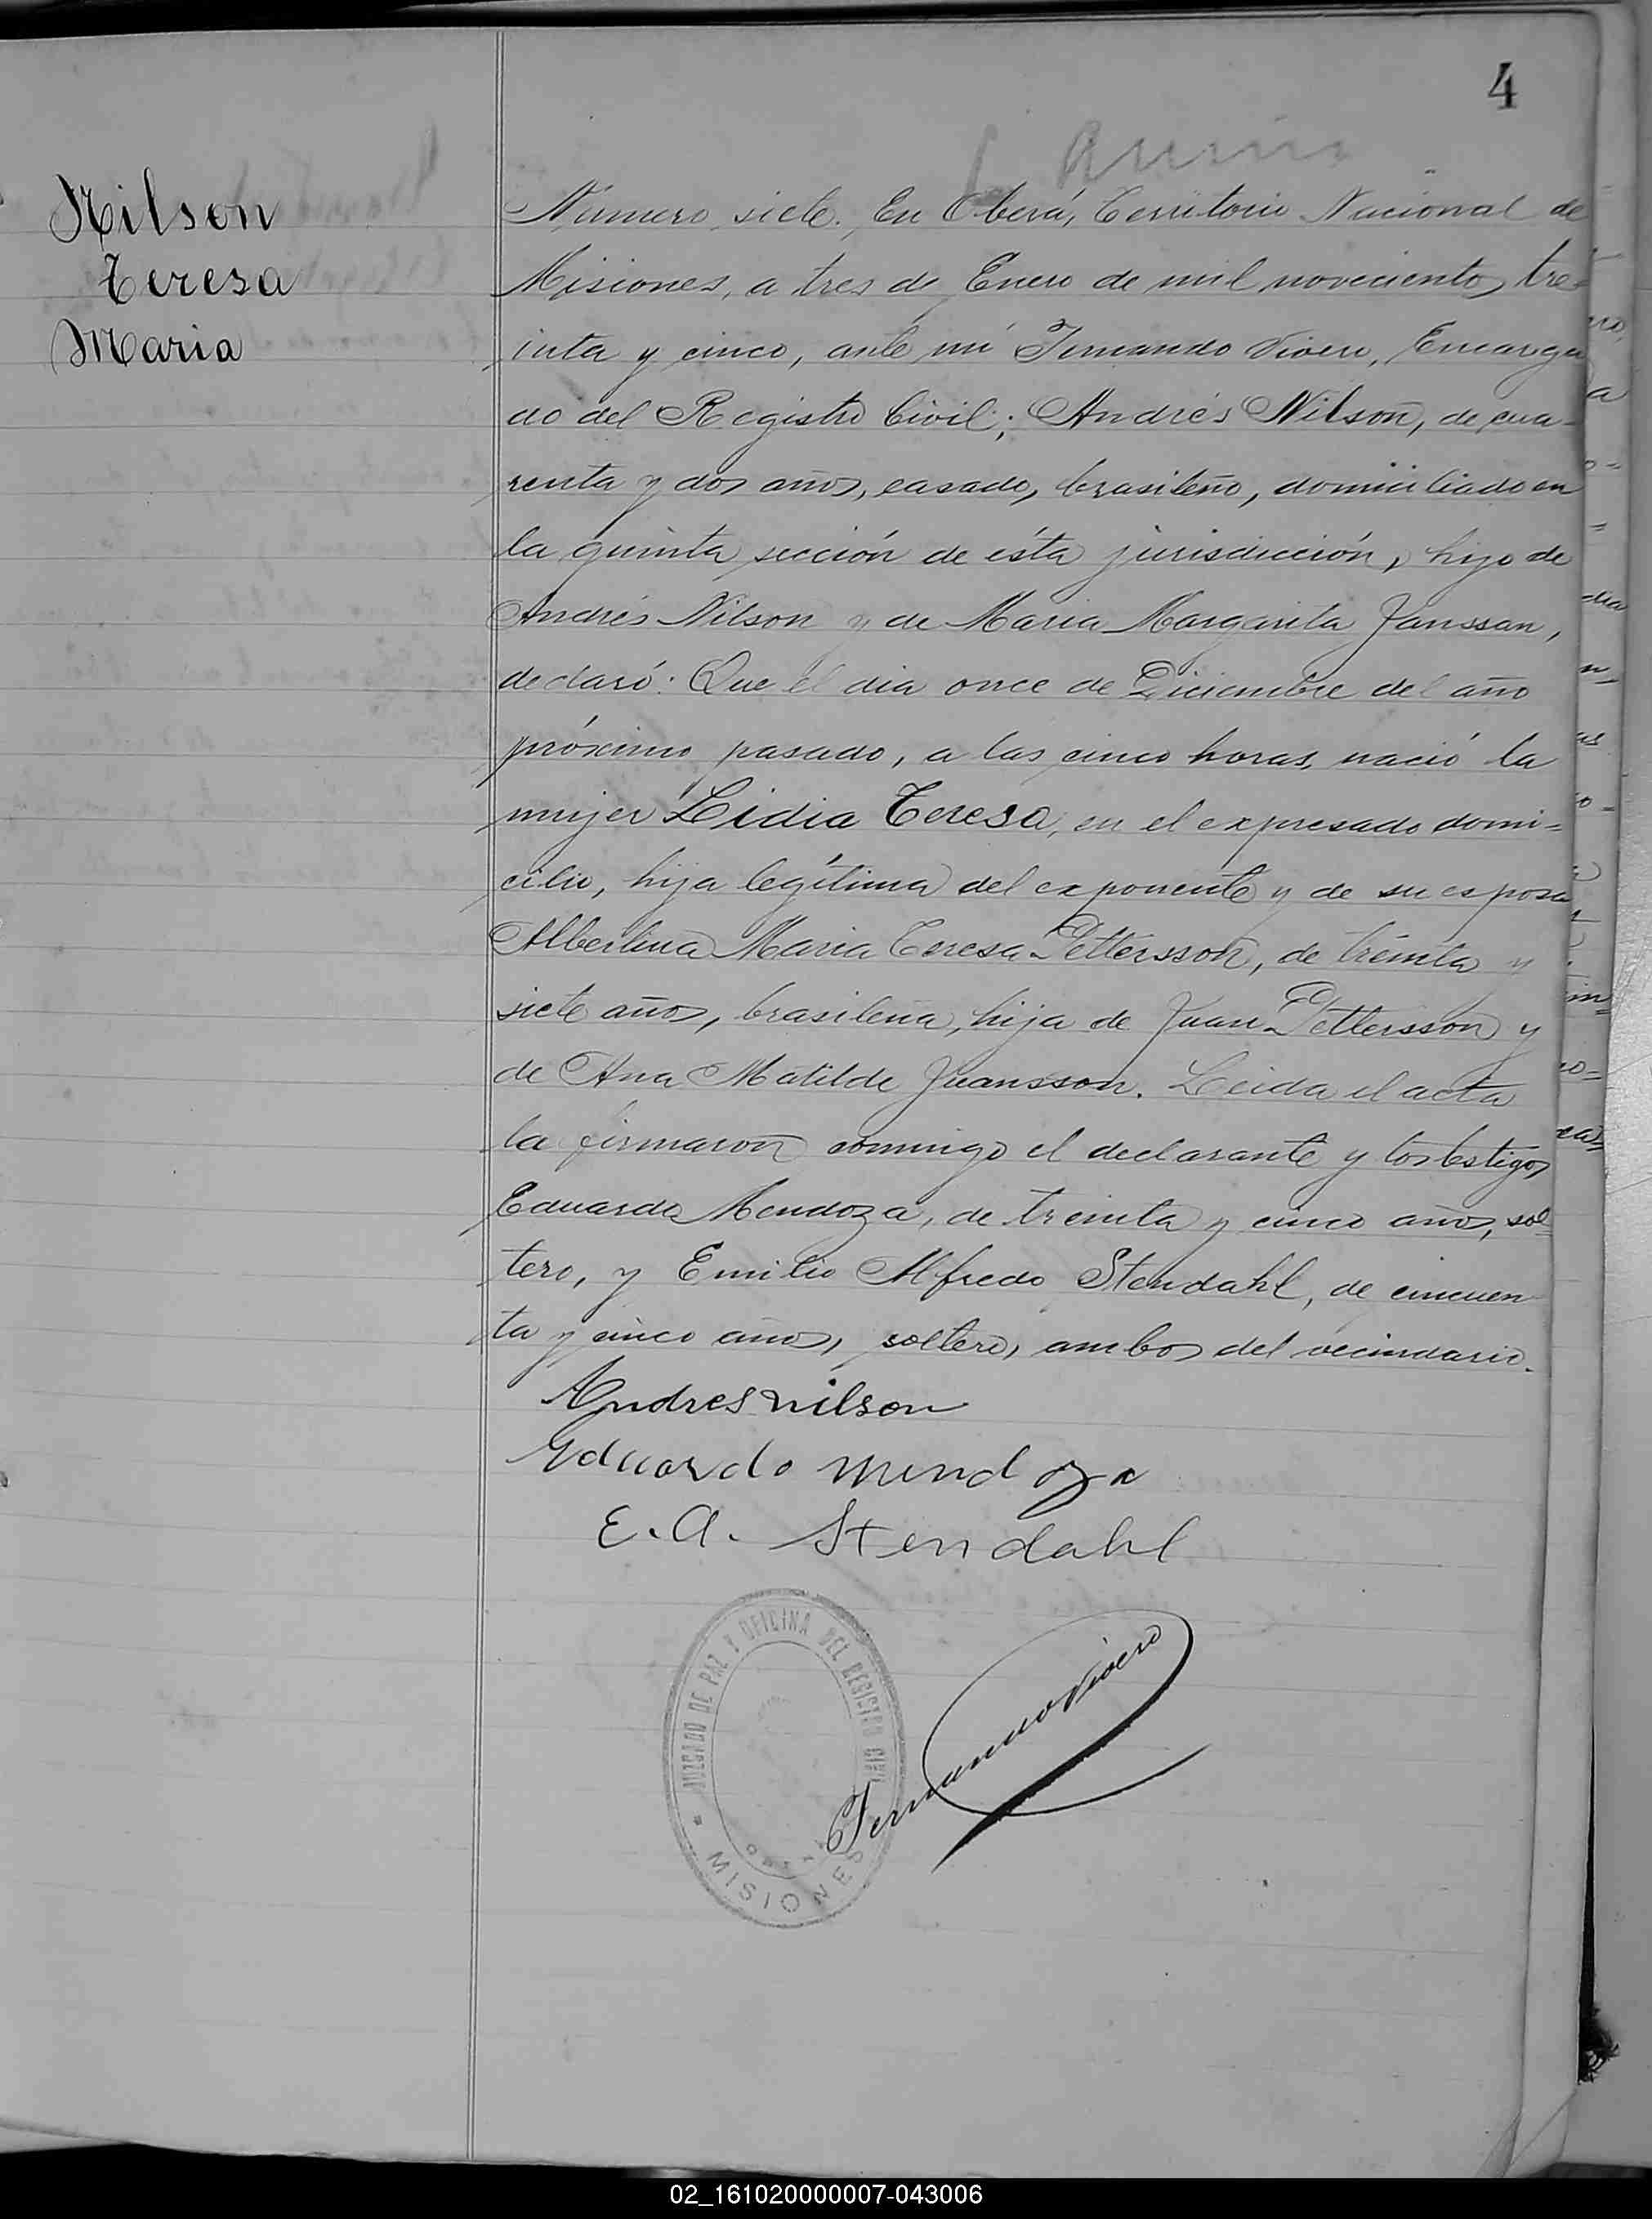 4
Nilson
Teresa
Maria
Número siete. En Oberá, Territorio Nacional de
Misiones, a tres de Enero de mil novecientos tre-
inta y cinco, ante mí Fernando Vivero, Encarga
do del Registro Civil; Andrés Nilson, de cua-
renta y dos años, casado, brasileño, domiciliado en
la quinta sección de ésta jurisdicción, hijo de
Andrés Nilson y de Maria Margarita Janssan,
declaró: Que el dia once de Diciembre del año
próximo pasado, a las cinco horas, nació la
mujer Lidia Teresa, en el expresado domi=
cilio, hija legítima del exponente y de su esposa
Albertina Maria Teresa Pettersson, de treinta y
siete años, brasileña, hija de Juan Pettersson y
de Ana Matilde Juansson. Leida el acta
la firmaron conmigo el declarante y los testigos
Eduardo Mendoza, de treinta y cinco años, sol
tero, y Emilio Alfredo Stendahl, de cincuen
ta y cinco años, soltero, ambos del vecindario.
Andres nilson
Eduardo Mendoza
E. A. Stendahl
JUZGADO DE PAZ Y OFICINA DEL REGISTRO CIVIL
MISIONES
Fernando Vivero
02_161020000007-043006